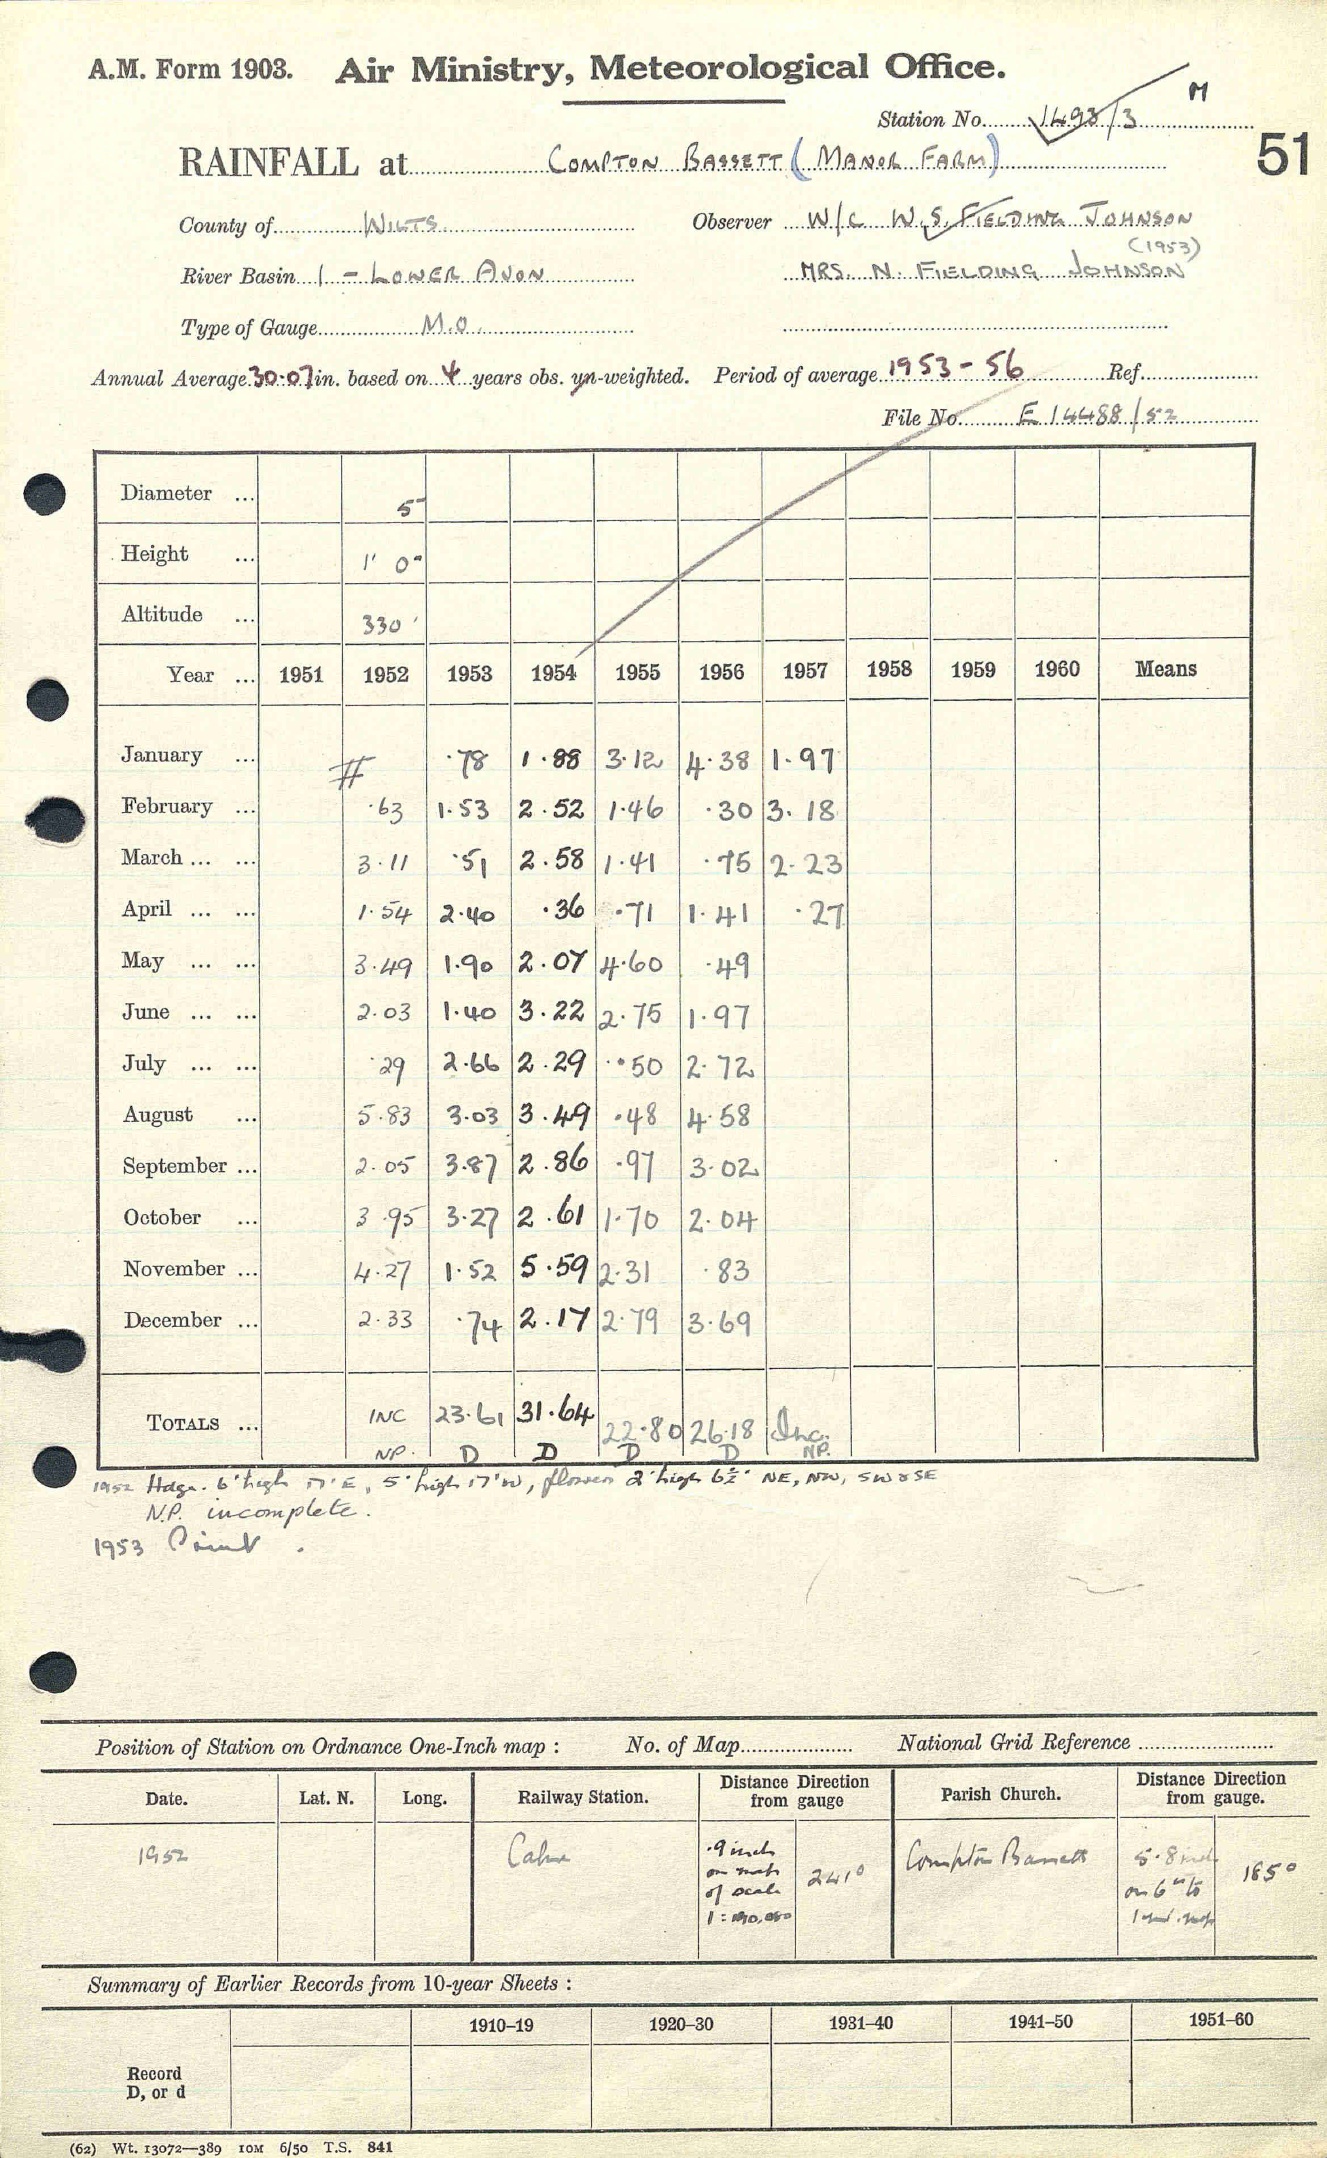 A.M. Form 1903. Air Ministry, Meteorological Office.
M
Station No. 1493/3
51
RAINFALL at COMPTON BASSETT (MANOR FARM)
County of WILTS. Observer W/C W.S. FIELDING JOHNSON
(1953)
River Basin 1 - LOWER AVON MRS. N. FIELDING JOHNSON
Type of Gauge M.O.
Annual Average 30.07 in. based on 4 years obs. un-weighted. Period of average 1953-56 Ref.
File No. E 14488/52
Diameter ... 5"
Height ... 1' 0"
Altitude ... 330'
Year ... 1951 1952 1953 1954 1955 1956 1957 1958 1959 1960 Means
January ... # .78 1.88 3.12 4.38 1.97
February ... .63 1.53 2.52 1.46 .30 3.18
March ... ... 3.11 .51 2.58 1.41 .75 2.23
April ... ... 1.54 2.40 .36 .71 1.41 .27
May ... ... 3.49 1.90 2.07 4.60 .49
June ... ... 2.03 1.40 3.22 2.75 1.97
July ... ... .29 2.66 2.29 .50 2.72
August ... 5.83 3.03 3.49 .48 4.58
September ... 2.05 3.87 2.86 .97 3.02
October ... 3.95 3.27 2.61 1.70 2.04
November ... 4.27 1.52 5.59 2.31 .83
December ... 2.33 .74 2.17 2.79 3.69
TOTALS ... INC 23.61 31.64 22.80 26.18 Inc.
NP. D D D D NP.
1952 Hdge. 6' high 17' E, 5' high 17' W, flowers 2' high 6½' NE, NW, SW & SE
N.P. incomplete.
1953
Position of Station on Ordnance One-Inch map : No. of Map National Grid Reference
Date. Lat. N. Long. Railway Station. Distance Direction from gauge Parish Church. Distance Direction from gauge.
1952 Calne .9 inch on map of scale 241° Compton Bassett 5.8 inch on 6" to 1 mile map 185°
Summary of Earlier Records from 10-year Sheets :
1910–19 1920–30 1931–40 1941–50 1951–60
Record
D, or d
(62) Wt. 13072—389 10M 6/50 T.S. 841